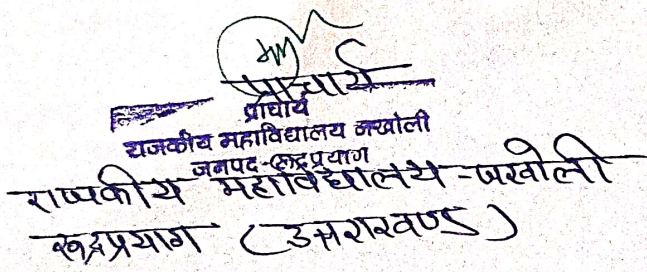 प्राचार्य
प्राचार्य
राजकीय महाविद्यालय जखोली
जनपद-रूद्रप्रयाग
राजकीय महाविद्यालय - जखोली
रूद्रप्रयाग (उत्तराखण्ड)